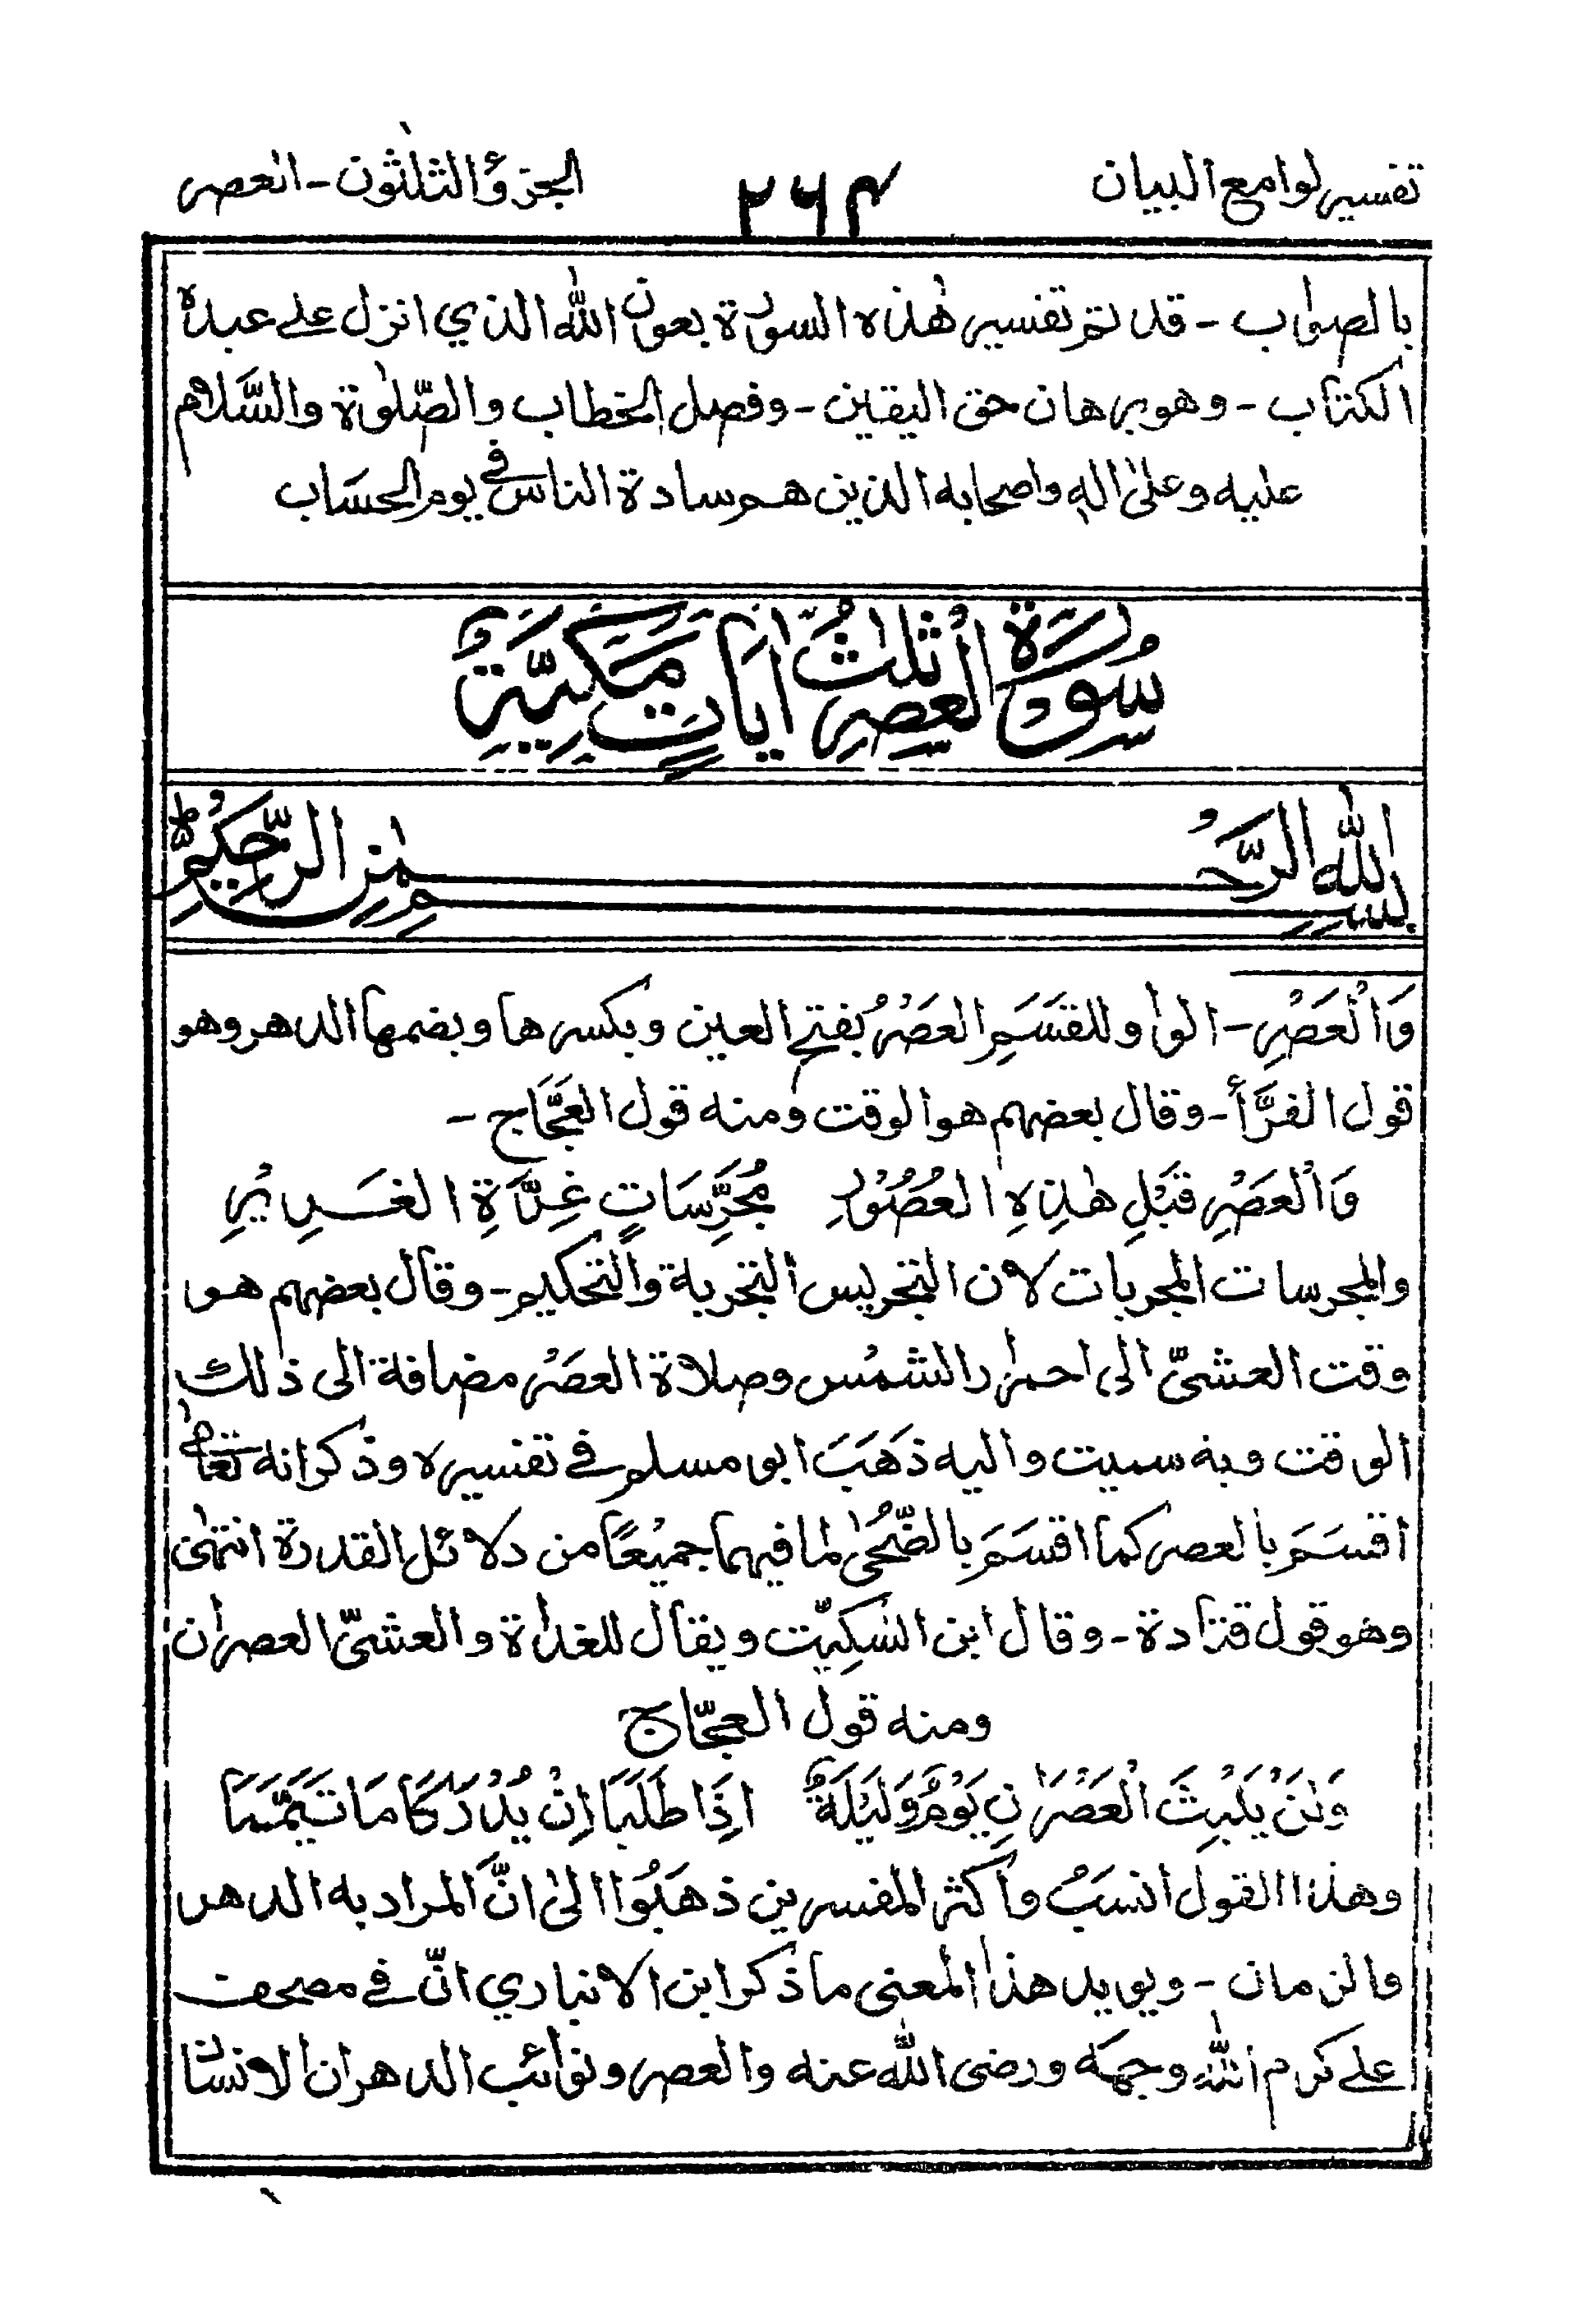 تفسير لوامع البيان ٢٦٤ الجزؤ الثلثون - العصر
بالصواب - قد تم تفسير هٰذه السورة بعون الله الذي انزل علے عبده
الكتاب - وهو برهان حق اليقين - وفصل الخطاب والصّلوٰة والسَّلام
عليه وعلىٰ اٰله واصحابه الذين هم سادة الناس في يوم الحسَاب
سُوْرَةُ الْعَصْرِ ثَلٰثُ اٰيَاتٍ مَكِّيَّةٌ
بِسْمِ اللهِ الرَّحْمٰنِ الرَّحِيْمِ ط
وَالْعَصْرِ - الواو للقسَمِ العَصْرُ بفتح العين وبكسرها وبضمها الدهر وهو
قول الفرَّأ - وقال بعضهم هو الوقت ومنه قول العَجَّاج -
وَالْعَصْرِ قَبْلِ هٰذِهِ العُصُوْرِ مُجَرِّسَاتٍ غِرَّةِ الغَرِيْرِ
والمجرسات المجربات لان التجريس التجربة والتحكيم - وقال بعضهم هو
وقت العشىّ الى احمرار الشمْس وصلاة العصْر مضافة الى ذٰلك
الوقت وبه سميت واليه ذَهَبَ ابو مسلم في تفسيره وذكر انه تعالىٰ
اقسَمَ بالعصر كما اقسَمَ بالضّحٰى لما فيهما جميْعًا من دلائل القدرة انتهىٰ
وهو قول قتادة - وقال ابن السّكِيّت ويقال للغداة والعشىّ العصران
ومنه قول العجّاج
وَلَنْ يَلْبَثَ الْعَصْرَانِ يَوْمٌ وَلَيْلَةٌ اِذَا طَلَبَا اِنْ يُدْرَكَا مَا تَيَمَّمَا
وهذا القول انسَبُ واكثر المفسرين ذهَبُوا الىٰ انَّ المراد به الدهر
والزمان - ويويد هذا المعنى ما ذكر ابن الانباري انّ في مصحف
علے كرم الله وجهه ورضى الله عنه والعصر ونوائب الدهر ان الانسان